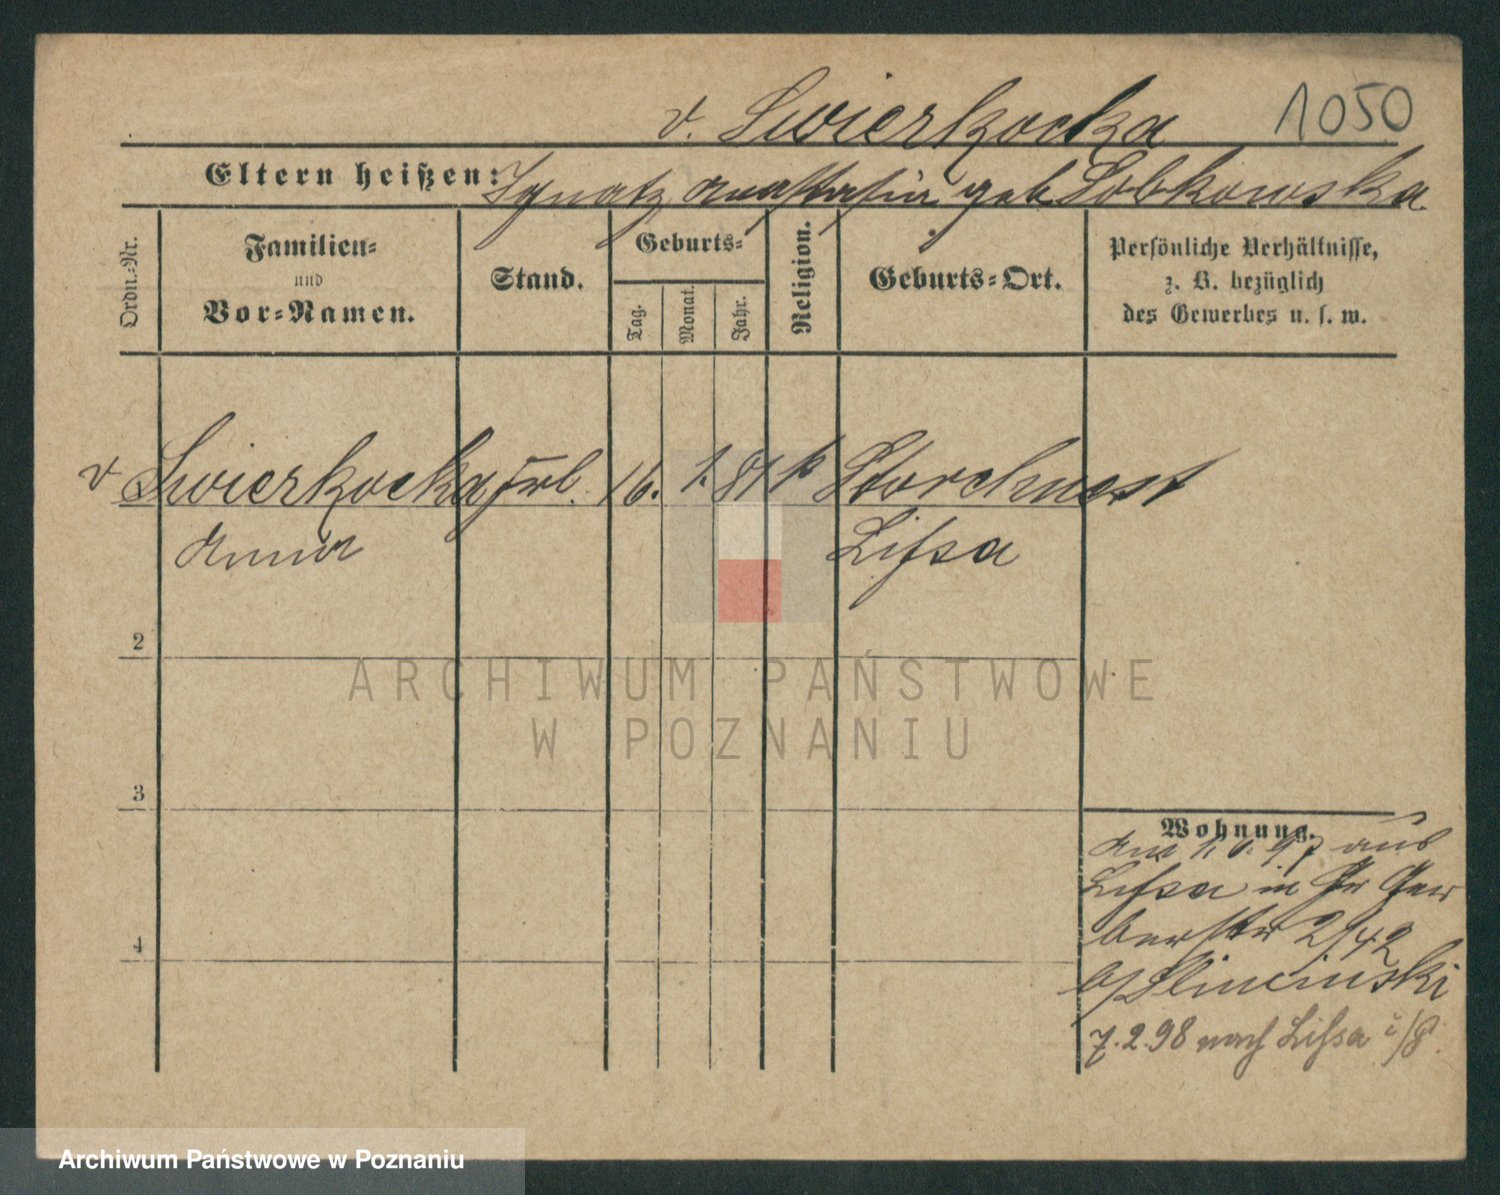 v. Swierkocka 1050
Eltern heißen: Ignatz Anastasia geb Sobkowska
Ordn.-Nr.
Familien-
und
Vor-Namen.
Stand.
Geburts-
Tag.
Monat.
Jahr.
Religion.
Geburts-Ort.
Persönliche Verhältnisse,
z. B. bezüglich
des Gewerbes u. s. w.
v Swierkocka Frl. 16. 1. 81 k Storchnest
Anna Lissa
2
ARCHIWUM PAŃSTWOWE
W POZNANIU
3
Wohnung.
aus
Lissa in Gr Ger
berstr 2/42
b/Slincinski
4
7.2.98 nach Lissa i/P.
Archiwum Państwowe w Poznaniu